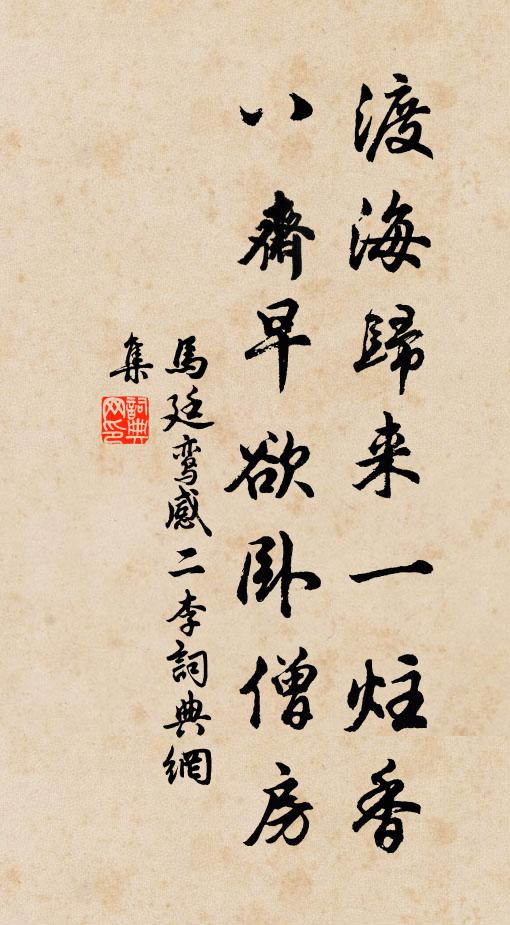 渡海歸来一炷香
八齋早欲卧僧房
馬廷鸞感二李詞典網
集
詞典网印